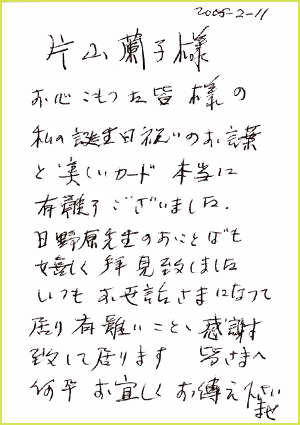 2005-2-11
片山蘭子様
お心こもった皆様の
私の誕生日祝いのお言葉
と美しいカード 本当に
有難うございました.
日野原先生のおことばも
嬉しく拝見致しました
いつもお世話さまになって
居り有難いことゝ感謝
致して居ります 皆さまへ
何卒お宜しくお傳え下さい
ませ